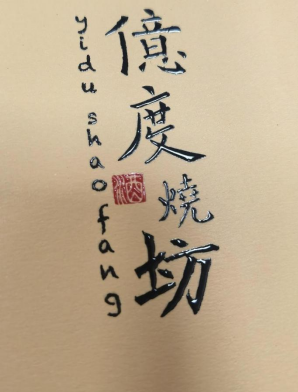 億度燒坊
yidu shao fang
酒